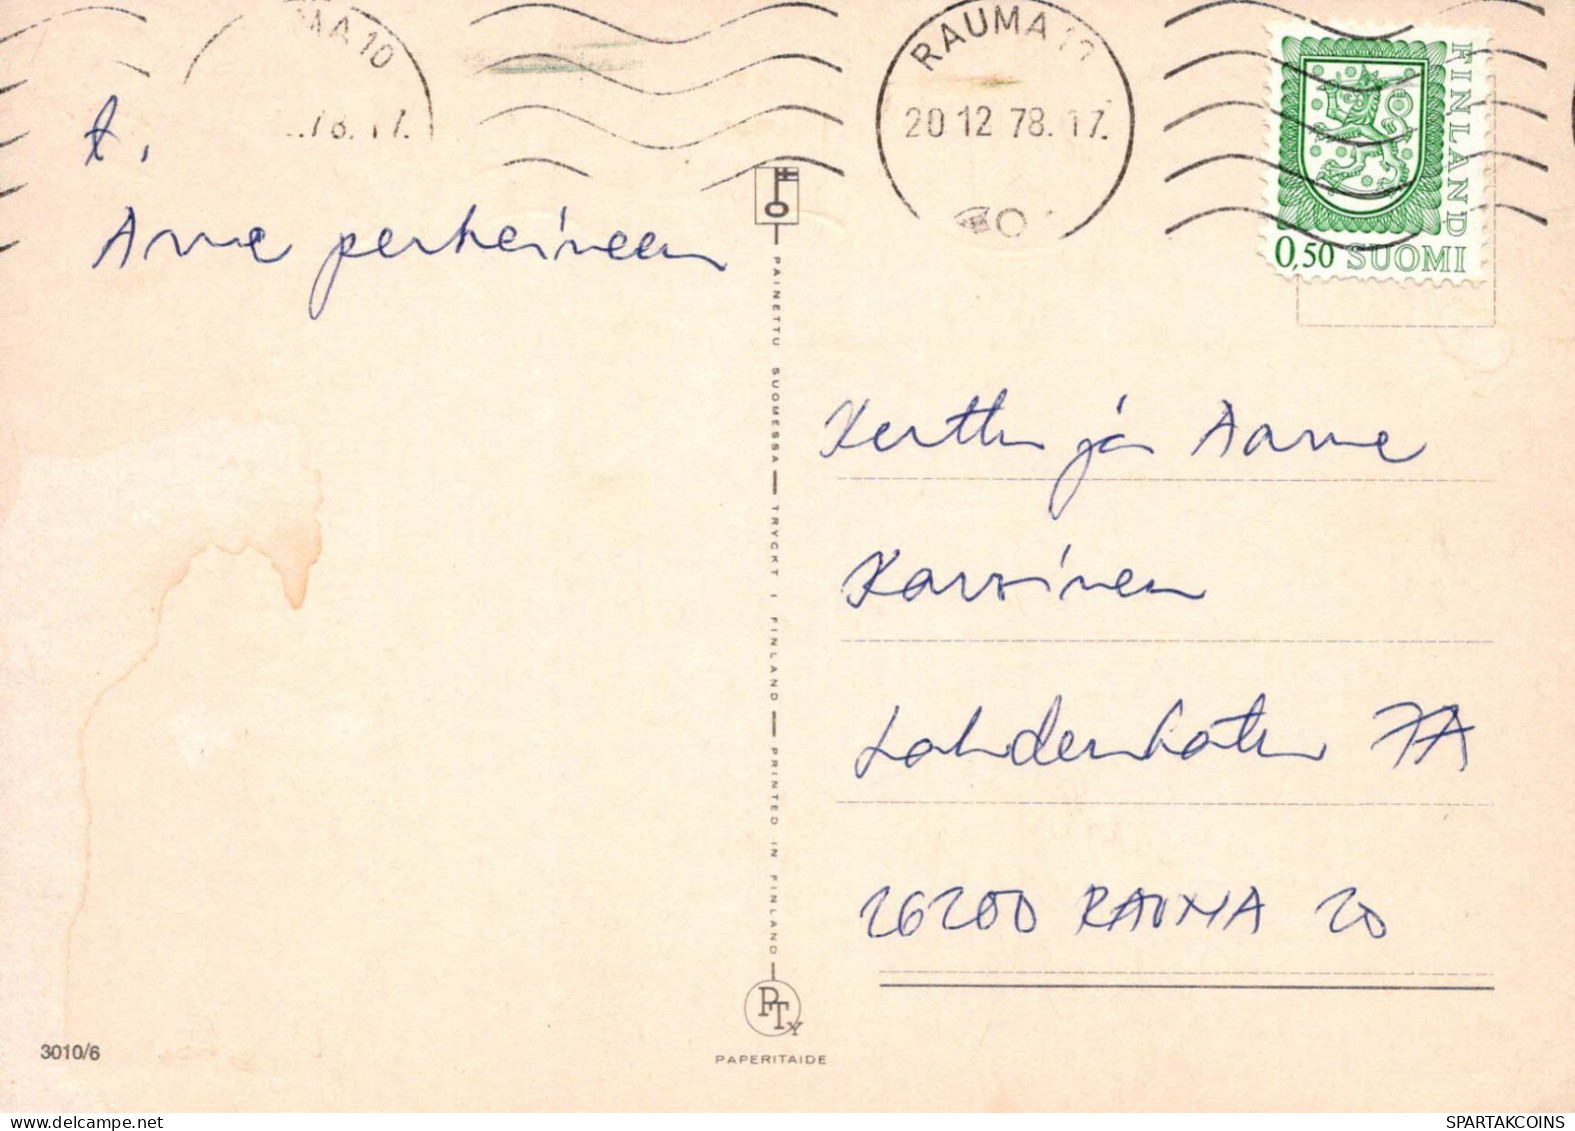 RAUMA 10
20 12 78.17.
FINLAND
0,50 SUOMI
t.
Arne perheineen
PAINETTU SUOMESSA — TRYCKT I FINLAND — PRINTED IN FINLAND
Kerttu ja Aarne
Karsinen
Lahdenkatu 7A
26200 RAUMA 20
PTY
PAPERITAIDE
3010/6
www.delcampe.net
SPARTAKCOINS